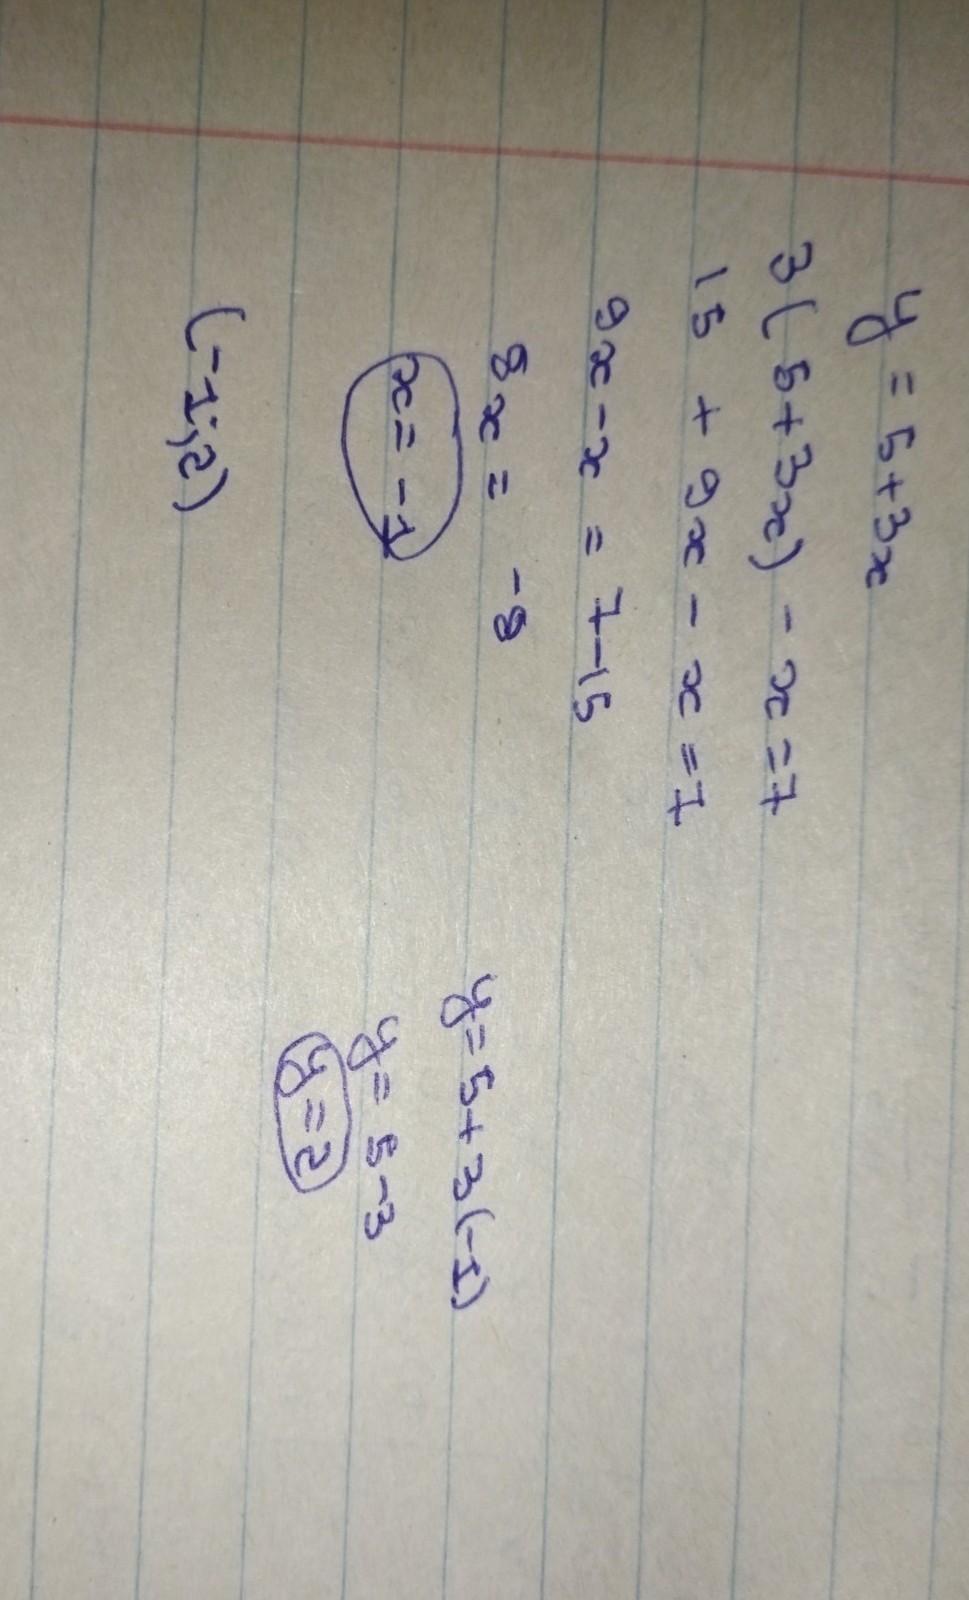 y = 5+3x
3(5+3x) - x = 7
15 + 9x - x = 7
9x - x = 7-15
8x = -8
x = -1
y = 5+3(-1)
y = 5-3
y = 2
(-1;2)